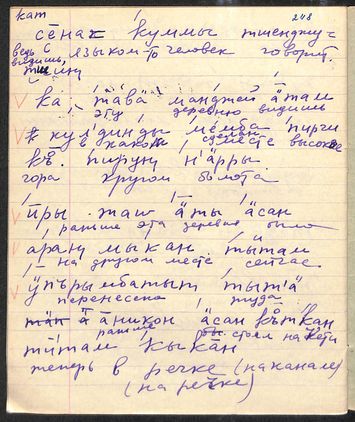 кат 248
сёнак куммы тшенджу-
ведь языком-то человек говорит.
видишь,
ка, тава манджей ӓтам
эту деревню видишь
кулдинды мемба пирги
в каком месте высокое
къ. пирунӱ н'ӓрры.
гора кругом болота
ӣры таш ӓты ӓсан
раньше эта деревня была
аран мыкан тӣтам
на другом месте сейчас
ӱпърымбатыт тытӓ
перенесена туда
ӓникон ӓсан къткан
раньше стоял на Кети
тӣтам кыкан
теперь в речке (на канале)
(на речке)